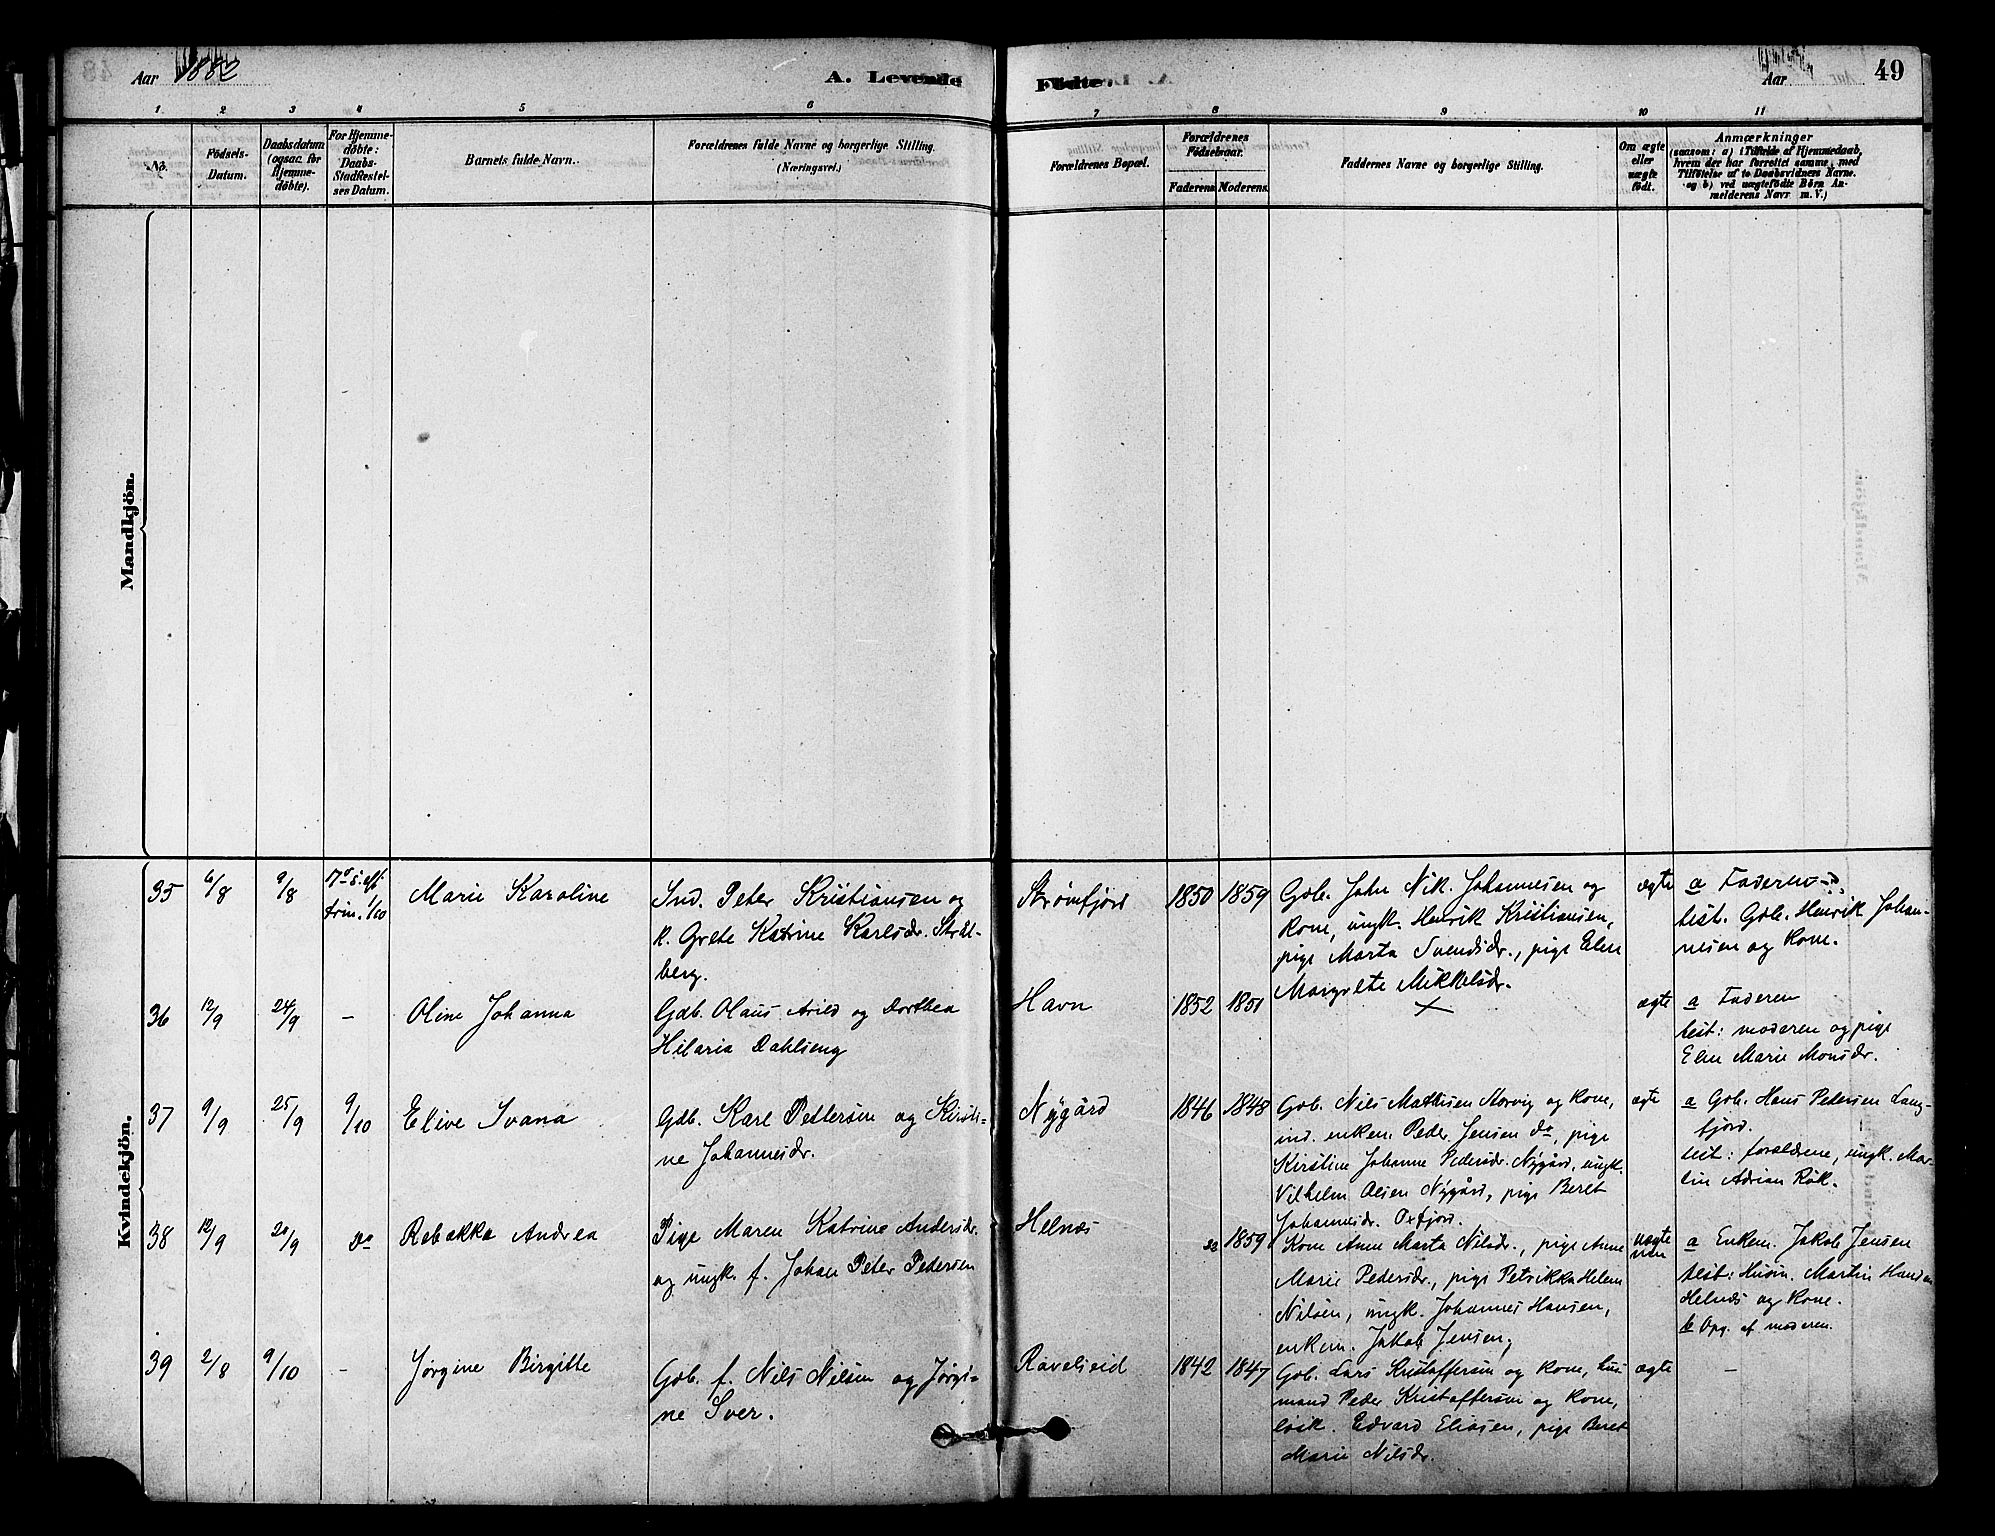 Aar 1882
A. Levende
Födte.
Aar
49
1
2
3
4
5
6
7
8
9
10
11
No.
Födsels-
Datum.
Daabsdatum
(ogsaa for
Hjemme-
döbte).
For Hjemme-
døbte:
Daabs-
Stadfæstel-
ses Datum.
Barnets fulde Navn.
Forældrenes fulde Navne og borgerlige Stilling.
(Næringsvei.)
Forældrenes Bopæl.
Forældrenes
Födselsaar.
Faderens.
Moderens.
Faddernes Navne og borgerlige Stilling.
Om ægte
eller
uægte
födt.
Anmærkninger
(saasom: a) i Tilfælde af Hjemmedaab,
hvem der har forrettet samme, med
Tilföielse af to Daabsvidners Navne.
og b) ved uægtefödte Börn An-
melderens Navn m. V.)
Mandkjön.
Kvindekjön.
35
6/8
9/8
17de s. eft.
trin. 1/10
Marie Karoline
Ind. Peter Kristiansen og
k. Grete Katrine Karlsdr. Strøl-
berg.
Strømfjord
1850
1859
Gdb. John Nik. Johannesen og
Kone, ungk. Henrik Kristiansen,
pige Marta Svendsdr., pige Elen
Margrete Mikkelsdr.
ægte
a Faderen
test. Gdb. Henrik Johan-
nesen og Kone.
36
12/9
24/9
-
Oline Johanna
Gdb. Olaus Arild og Dorthea
Hilaria Dahlseng
Havn
1852
1851
ægte
a Faderen
test: moderen og pige
Elen Marie Monsdr.
37
9/9
25/9
9/10
Elive Ivana
Gdb. Karl Pettersen og Kirsti-
ne Johannesdr.
Nygård
1846
1848
Gdb. Nils Mathisen Storvig og Kone,
ind. enkem. Peder Jensen do, pige
Kirstine Johanne Pedersdr. Nygård, ungk.
Vilhelm Olsen Nygård, pige Beret
Johannesdr. Oxfjord.
ægte
a Gdb. Hans Pedersen Lang-
fjord.
test: forældrene, ungk. Mar-
tin Adrian Røk.
38
12/9
20/9
do
Rebakka Andrea
Pige Maren Katrine Andersdr.
og ungk. f. Johan Peter Pedersen
Helnæs
22
1859
Kone Anne Marta Nilsdr., pige Anne
Marie Pedersdr., pige Petrikka Helene
Nilsen, ungk. Johannes Hansen,
enkem. Jakob Jensen,
uægte
a Enkem. Jakob Jensen
test: Husm. Martin Hansen
Helnæs og Kone.
b Opg. af moderen.
39
2/8
9/10
-
Jørgine Birgitte
Gdb. f. Nils Nilsen og Jørgi-
ne Iver.
Ravelseid
1842
1847
Gdb. Lars Kristoffersen og Kone, hus-
mand Peder Kristoffersen og Kone,
løsk. Edvard Eliasen, pige Beret
Marie Nilsdr.
ægte
-